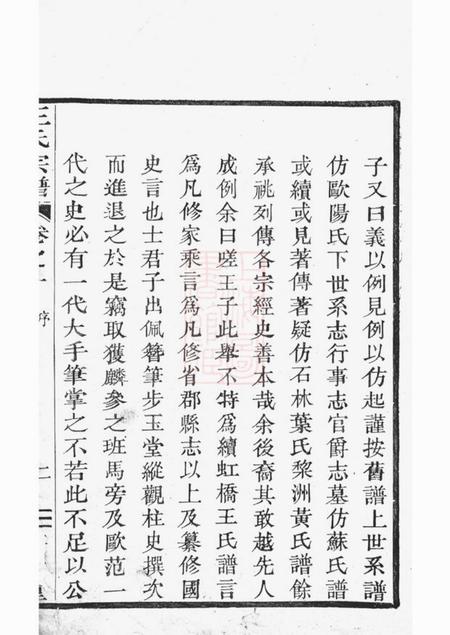 子又曰義以例見例以仿起謹按舊譜上世系譜
仿歐陽氏下世系志行事志官爵志墓仿蘇氏譜
或續或見著傳著疑仿石林葉氏黎洲黃氏譜餘
承祧列傳各宗經史善本哉余後裔其敢越先人
成例余曰嗟王子此舉不特爲續虹橋王氏譜言
爲凡修家乘言爲凡修省郡縣志以上及纂修國
史言也士君子出佩簪筆步玉堂縱觀柱史撰次
而進退之於是竊取獲麟參之班馬旁及歐范一
代之史必有一代大手筆掌之不若此不足以公
王氏宗譜 卷之一 序 二